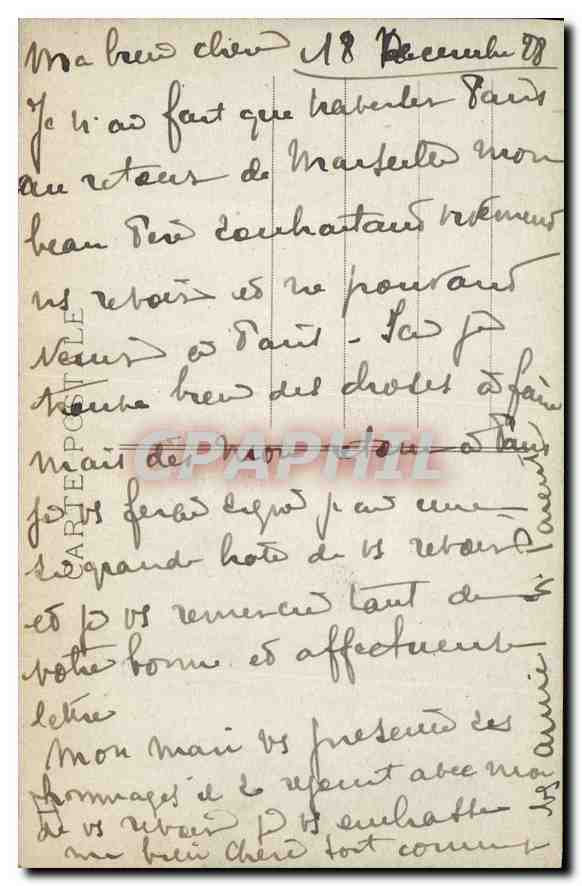 Ma bien chère 18 Decembre 28
Je n'ai fait que traverser Paris
au retour de Marseille mon
beau Père souhaitant vivement
ns revoir et ne pouvant
venir à Paris - Ici je
trouve bien des choses à faire
mais dès mon retour à Paris
je vs ferai signe j'ai une
si grande hâte de vs revoir
et je vs remercie tant de
votre bonne et affectueuse
lettre
Mon mari vs présente ses
hommages il se rejouit avec moi
de vs revoir je vs embrasse
ma bien chère tout comme
CARTE POSTALE
CPAPHIL